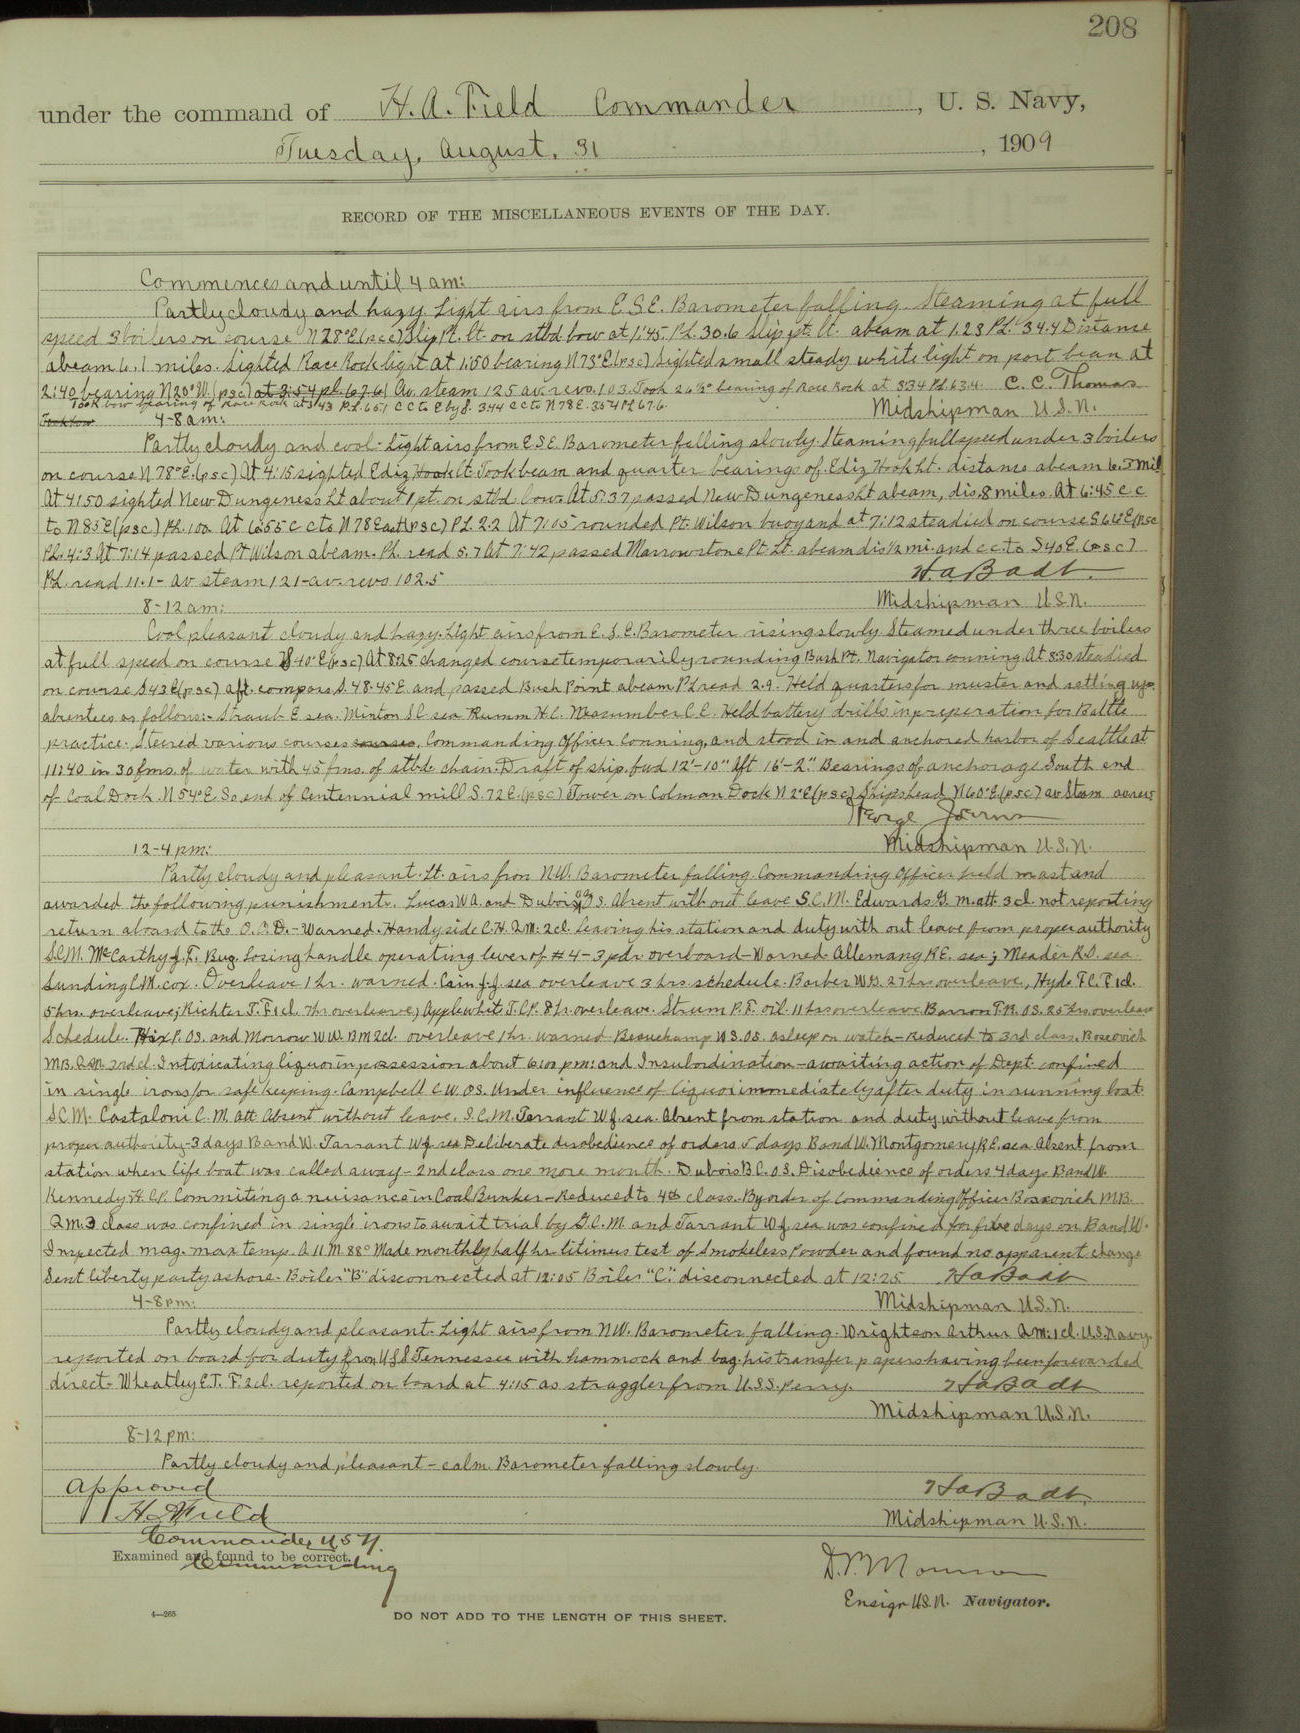 208
under the command of H. A. Field Commander, U. S. Navy,
Tuesday, August, 31, 1909
RECORD OF THE MISCELLANEOUS EVENTS OF THE DAY.
Commences and until 4 am:
Partly cloudy and hazy. Light airs from E.S.E. Barometer falling. Steaming at full
speed 3 boilers on course N 78° E (p.s.c) Slip Pt. Lt. on stbd bow at 1:45. P.L. 30.6 Slip pt. lt. abeam at 1.28 P.L. 34.4 Distance
abeam 6.1 miles. Sighted Race Rock light at 1:50 bearing N 73° E (psc) Sighted small steady white light on port beam at
2:40 bearing N 20° W. (psc) at 3:54 pl. (67.6) Av. steam 125 av. revo. 103. Took 26½° bearing of Race Rock at 334 P.L. 63.4. C. C. Thomas
Took bow bearing of Race Rock at 343 P.L. 65.1 C C to E by S. 344 c c to N 78 E. 354 Pl 67.6.
Midshipman U.S.N.
4-8 am:
Partly cloudy and cool. Light airs from E.S.E. Barometer falling slowly. Steaming full speed under 3 boilers
on course N 78° E. (p s c) At 4:15 sighted Ediz Hook Lt. Took beam and quarter bearings of Ediz Hook Lt. distance abeam 6.5 mil
At 4:50 sighted New Dungeness Lt about 1 pt. on stbd bow. At 5:37 passed New Dungeness Lt abeam, dis. 8 miles. At 6:45 c c
to N 85 E (psc) P.L. 100. At 6:55 c c to N 78 East (psc) P.L 2.2 At 7:05 rounded Pt. Wilson buoy and at 7:12 steadied on course S 66 E (psc
P.L. 4:3 At 7:14 passed Pt Wilson abeam. P.L. read 5.7 At 7:42 passed Marrowstone Pt. Lt. abeam dis ½ mi. and c c. to S 40 E. (p s c)
P.L. read 11.1 - av steam 121 - av. revs 102.5
H. a. Badt.
Midshipman U.S.N.
8-12 am:
Cool pleasant cloudy and hazy. Light airs from E.S.E. Barometer rising slowly. Steamed under three boilers
at full speed on course S 40° E (psc) At 8:25 changed course temporarily rounding Bush Pt. Navigator conning. At 8:30 steadied
on course S 43 E (p s c) aft. compass S. 48-45 E. and passed Bush Point abeam P.L read 2.9. Held quarters for muster and setting up.
absentees as follows:- Straub E sea. Minton S.C. sea. Rumm H.C. Messumber C.E. Held battery drills in preperation for Battle
practice. Steered various courses courses, Commanding Officer conning, and stood in and anchored harbor of Seattle at
11:40 in 30 fms. of water with 45 fms. of stbd chain. Draft of ship. fwd 12'-10" Aft 16'-2". Bearings of anchorage South end
of Coal Dock N 54° E. So end of Centennial mill S. 72 E. (psc) Tower on Colman Dock N 2° E (psc) Ships head N 60° E (psc) av Steam av revs
Midshipman U.S.N.
12-4 pm:
Partly cloudy and pleasant. Lt. airs from N.W. Barometer falling. Commanding Officer held mast and
awarded the following punishments. Lucas W A. and Dubois O.S. Absent with out leave S.C.M. Edwards G. M. att. 3 cl. not reporting
return aboard to the O.O.D. - Warned. Handyside C.H. Q.M. 2cl. leaving his station and duty with out leave from proper authority
S.C.M. McCarthy J. F. Bug. losing handle operating lever of #4 - 3 pdr overboard - Warned. Allemang R.E. sea; Meader R.D. sea
Sunding C.M. cox. Overleave 1 hr. warned. Cain J. J. sea overleave 3 hrs schedule. Barber W.G. 27 hrs overleave, Hyde F.C. F 1cl.
5 hrs. overleave; Richter J. F 1cl. 7 hrs overleave; Applewhite J. C.P. 8 hr. overleave. Strum P.F. oil. 11 hrs overleave Barron F.R. O.S. 25 hrs. overleave
Schedule. Hix P. O.S. and Morrow W.W. B M 2cl. overleave 1 hr. warned. Beauchamp W.S. O.S. asleep on watch - Reduced to 3rd class. Boscovich
M.B. Q.M. 3rd cl. Intoxicating liquor in possession about 6:00 pm: and Insubordination - awaiting action of Dept. confined
in single irons for safe keeping. Campbell C.W. O.S. Under influence of liquor immediately after duty in running boat
S.C.M. Castaloni C. M. att. Absent without leave. S.C.M. Tarrant W J. sea. Absent from station and duty without leave from
proper authority - 3 days B and W. Tarrant W J. sea Deliberate disobedience of orders 5 days B and W. Montgomery R E. sea Absent from
station when life boat was called away - 2nd class one more month. Dubois B C. O.S. Disobedience of orders 4 days B and W.
Kennedy H. C.P. Commiting a nuisance in Coal Bunker - Reduced to 4th class. By order of Commanding Officer Boscovich M.B.
Q M. 3 class was confined in single irons to await trial by G.C.M. and Tarrant W J. sea was confined for five days on B and W.
Inspected mag. max temp. A 11 M 88° Made monthly half hr. litimus test of Smokeless Powder and found no apparent change
Sent liberty party ashore. Boiler "B" disconnected at 12:05 Boiler "C" disconnected at 12:25
H a Badt
4-8 pm:
Midshipman U.S.N.
Partly cloudy and pleasant. Light airs from N.W. Barometer falling. Wrightson Arthur Q M. 1 cl. U.S. Navy.
reported on board for duty from U S S Tennessee with hammock and bag. his transfer papers having been forwarded
direct. Wheatley E.T. F. 2cl. reported on board at 4:15 as straggler from U.S.S. Perry.
H a Badt
Midshipman U.S.N.
8-12 pm:
Partly cloudy and pleasant - calm. Barometer falling slowly.
Approved
H A Field
Commander, U S N.
Commanding
H a Badt.
Midshipman U.S.N.
Examined and found to be correct.
Ensign U.S.N. Navigator.
4—265
DO NOT ADD TO THE LENGTH OF THIS SHEET.